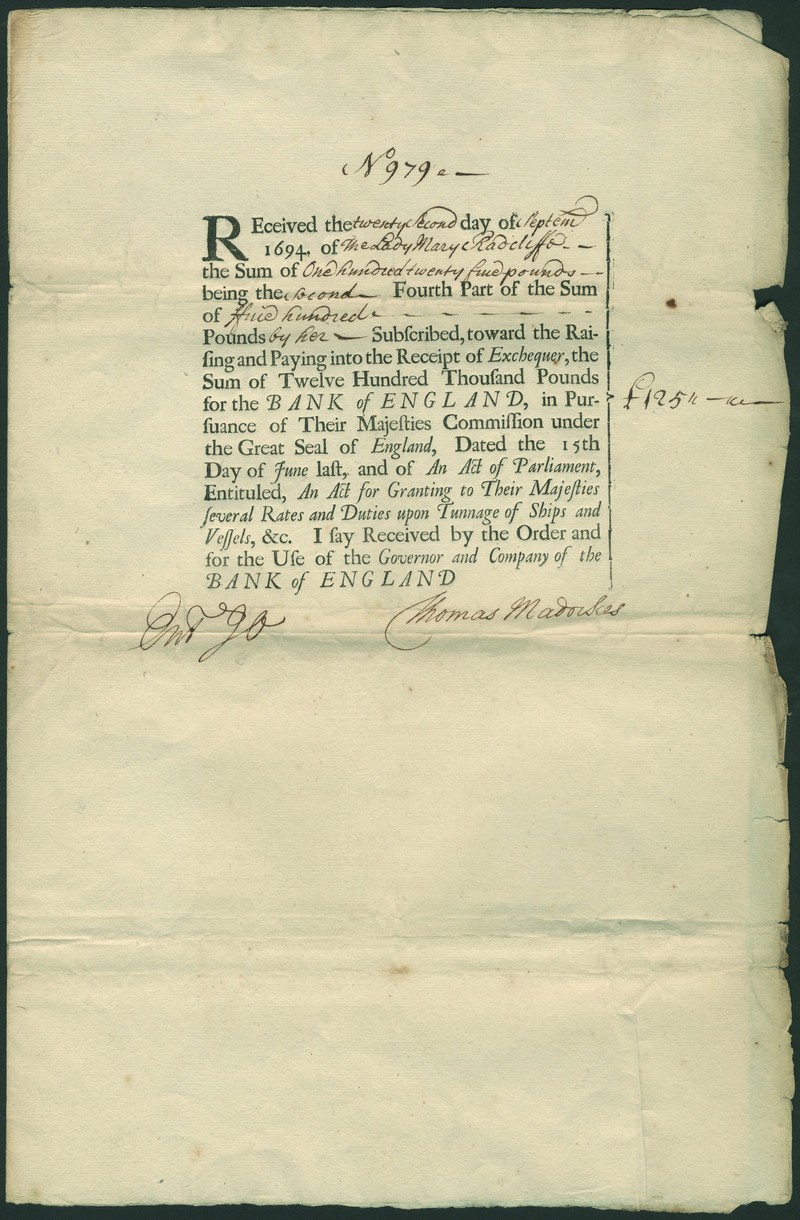 No 979
REceived the twenty second day of Septem
1694. of The Lady Mary Radcliffe
the Sum of One hundred twenty five pounds
being the second Fourth Part of the Sum
of ffive hundred
Pounds by her Subſcribed, toward the Rai-
ſing and Paying into the Receipt of Exchequer, the
Sum of Twelve Hundred Thouſand Pounds
for the BANK of ENGLAND, in Pur-
ſuance of Their Majeſties Commiſſion under
the Great Seal of England, Dated the 15th
Day of June laſt, and of An Act of Parliament,
Entituled, An Act for Granting to Their Majeſties
ſeveral Rates and Duties upon Tunnage of Ships and
Veſſels, &c. I ſay Received by the Order and
for the Uſe of the Governor and Company of the
BANK of ENGLAND
£125
Thomas Madockes